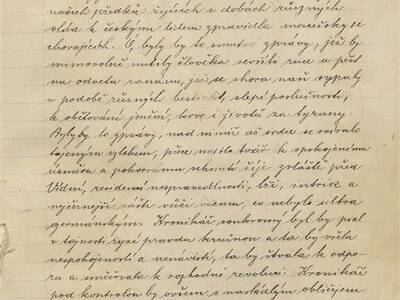 našich předků žijících v dobách různých
vlád k českým lidem zpravidla macešsky se
chovajících. O, byly by to smutné zprávy, jež by
mimovolně nutily člověka sevříti ruce a pěst
na odvetu ranám, jež se shora naň sypaly
v podobě různých slepé poslušnosti,
k obětování jmění, krve i životů za tyrany.
Byly by to zprávy, nad nimiž až srdce se svíralo
tajeným vztekem, přece nutilo tvář k spokojenému
úsměvu a pokornému sehnutí šíje zvláště před
Vídní, residencí nespravedlnosti, lži, intrik a
nejčernější zášti vůči všemu, co nebylo ultra
germánským. Kronikář soukromý byl by psal
v tajnosti ryzí pravdu krušnou a ta by včela
nespokojeností a nenávistí, ta by štvala k odpo-
ru a směřovala k rozhodné revoluci. Kronikář
pod kontrolou by ovšem s obličejem